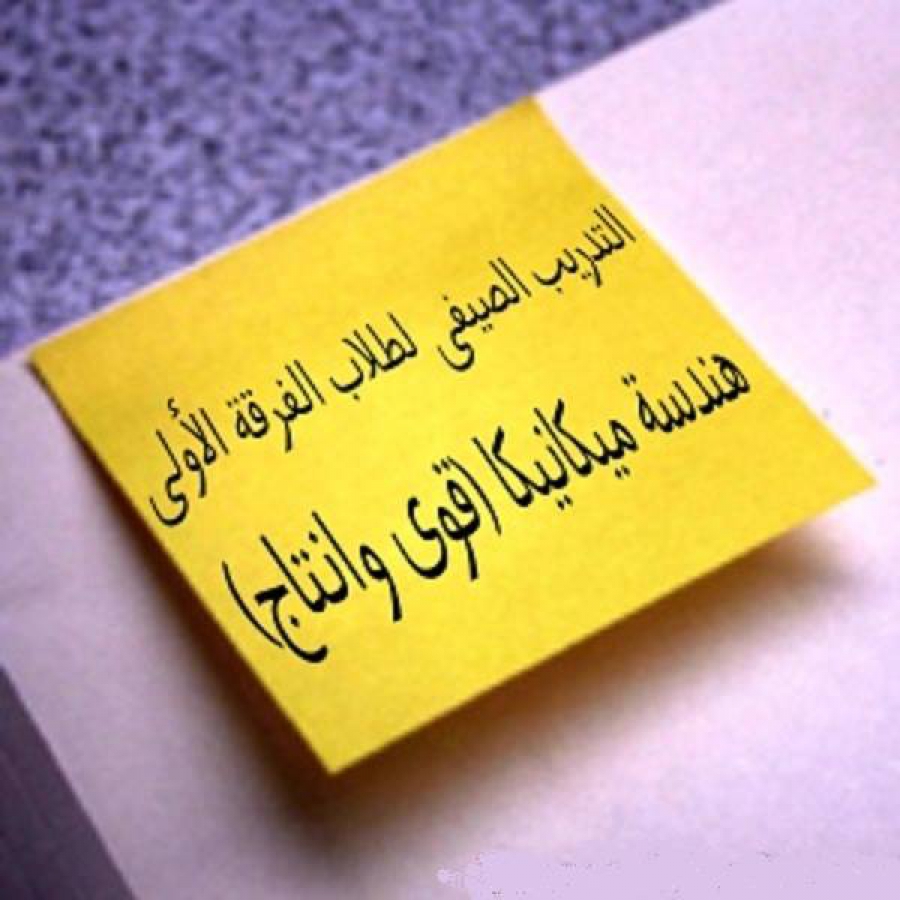 التدريب الصيفى لطلاب الفرقة الأولى
هندسة ميكانيكا (قوى وانتاج)